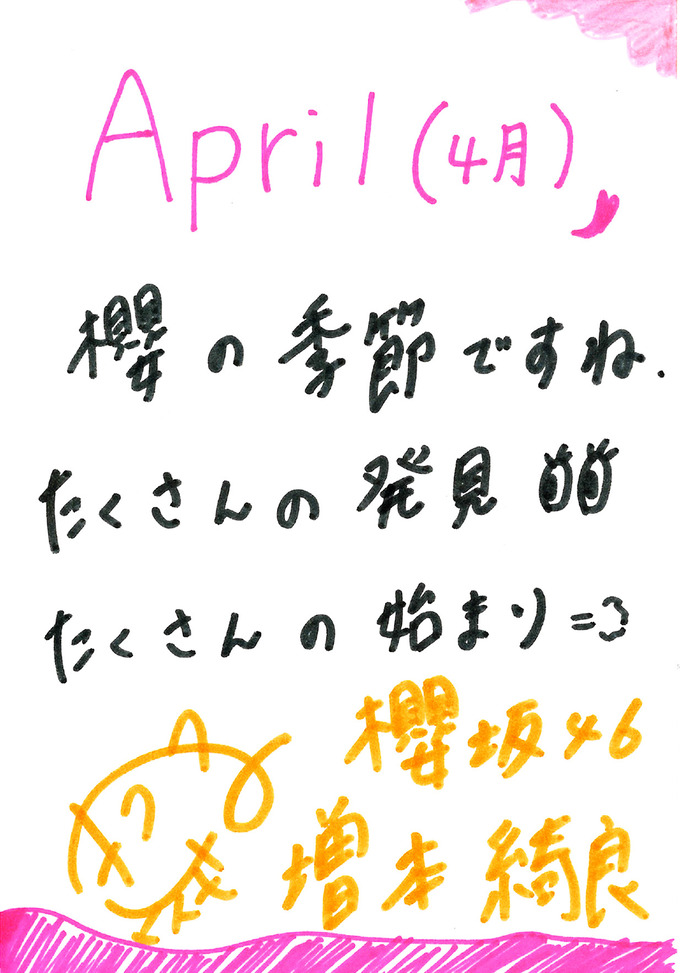 April (4月)
櫻の季節ですね.
たくさんの発見
たくさんの始まり=3
櫻坂46
増本綺良